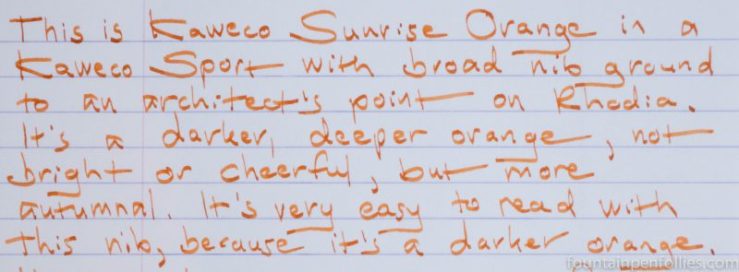 This is Kaweco Sunrise Orange in a
Kaweco Sport with broad nib ground
to an architect's point on Rhodia.
It's a darker, deeper orange, not
bright or cheerful, but more
autumnal. It's very easy to read with
this nib, because it's a darker orange.
fountainpenfollies.com